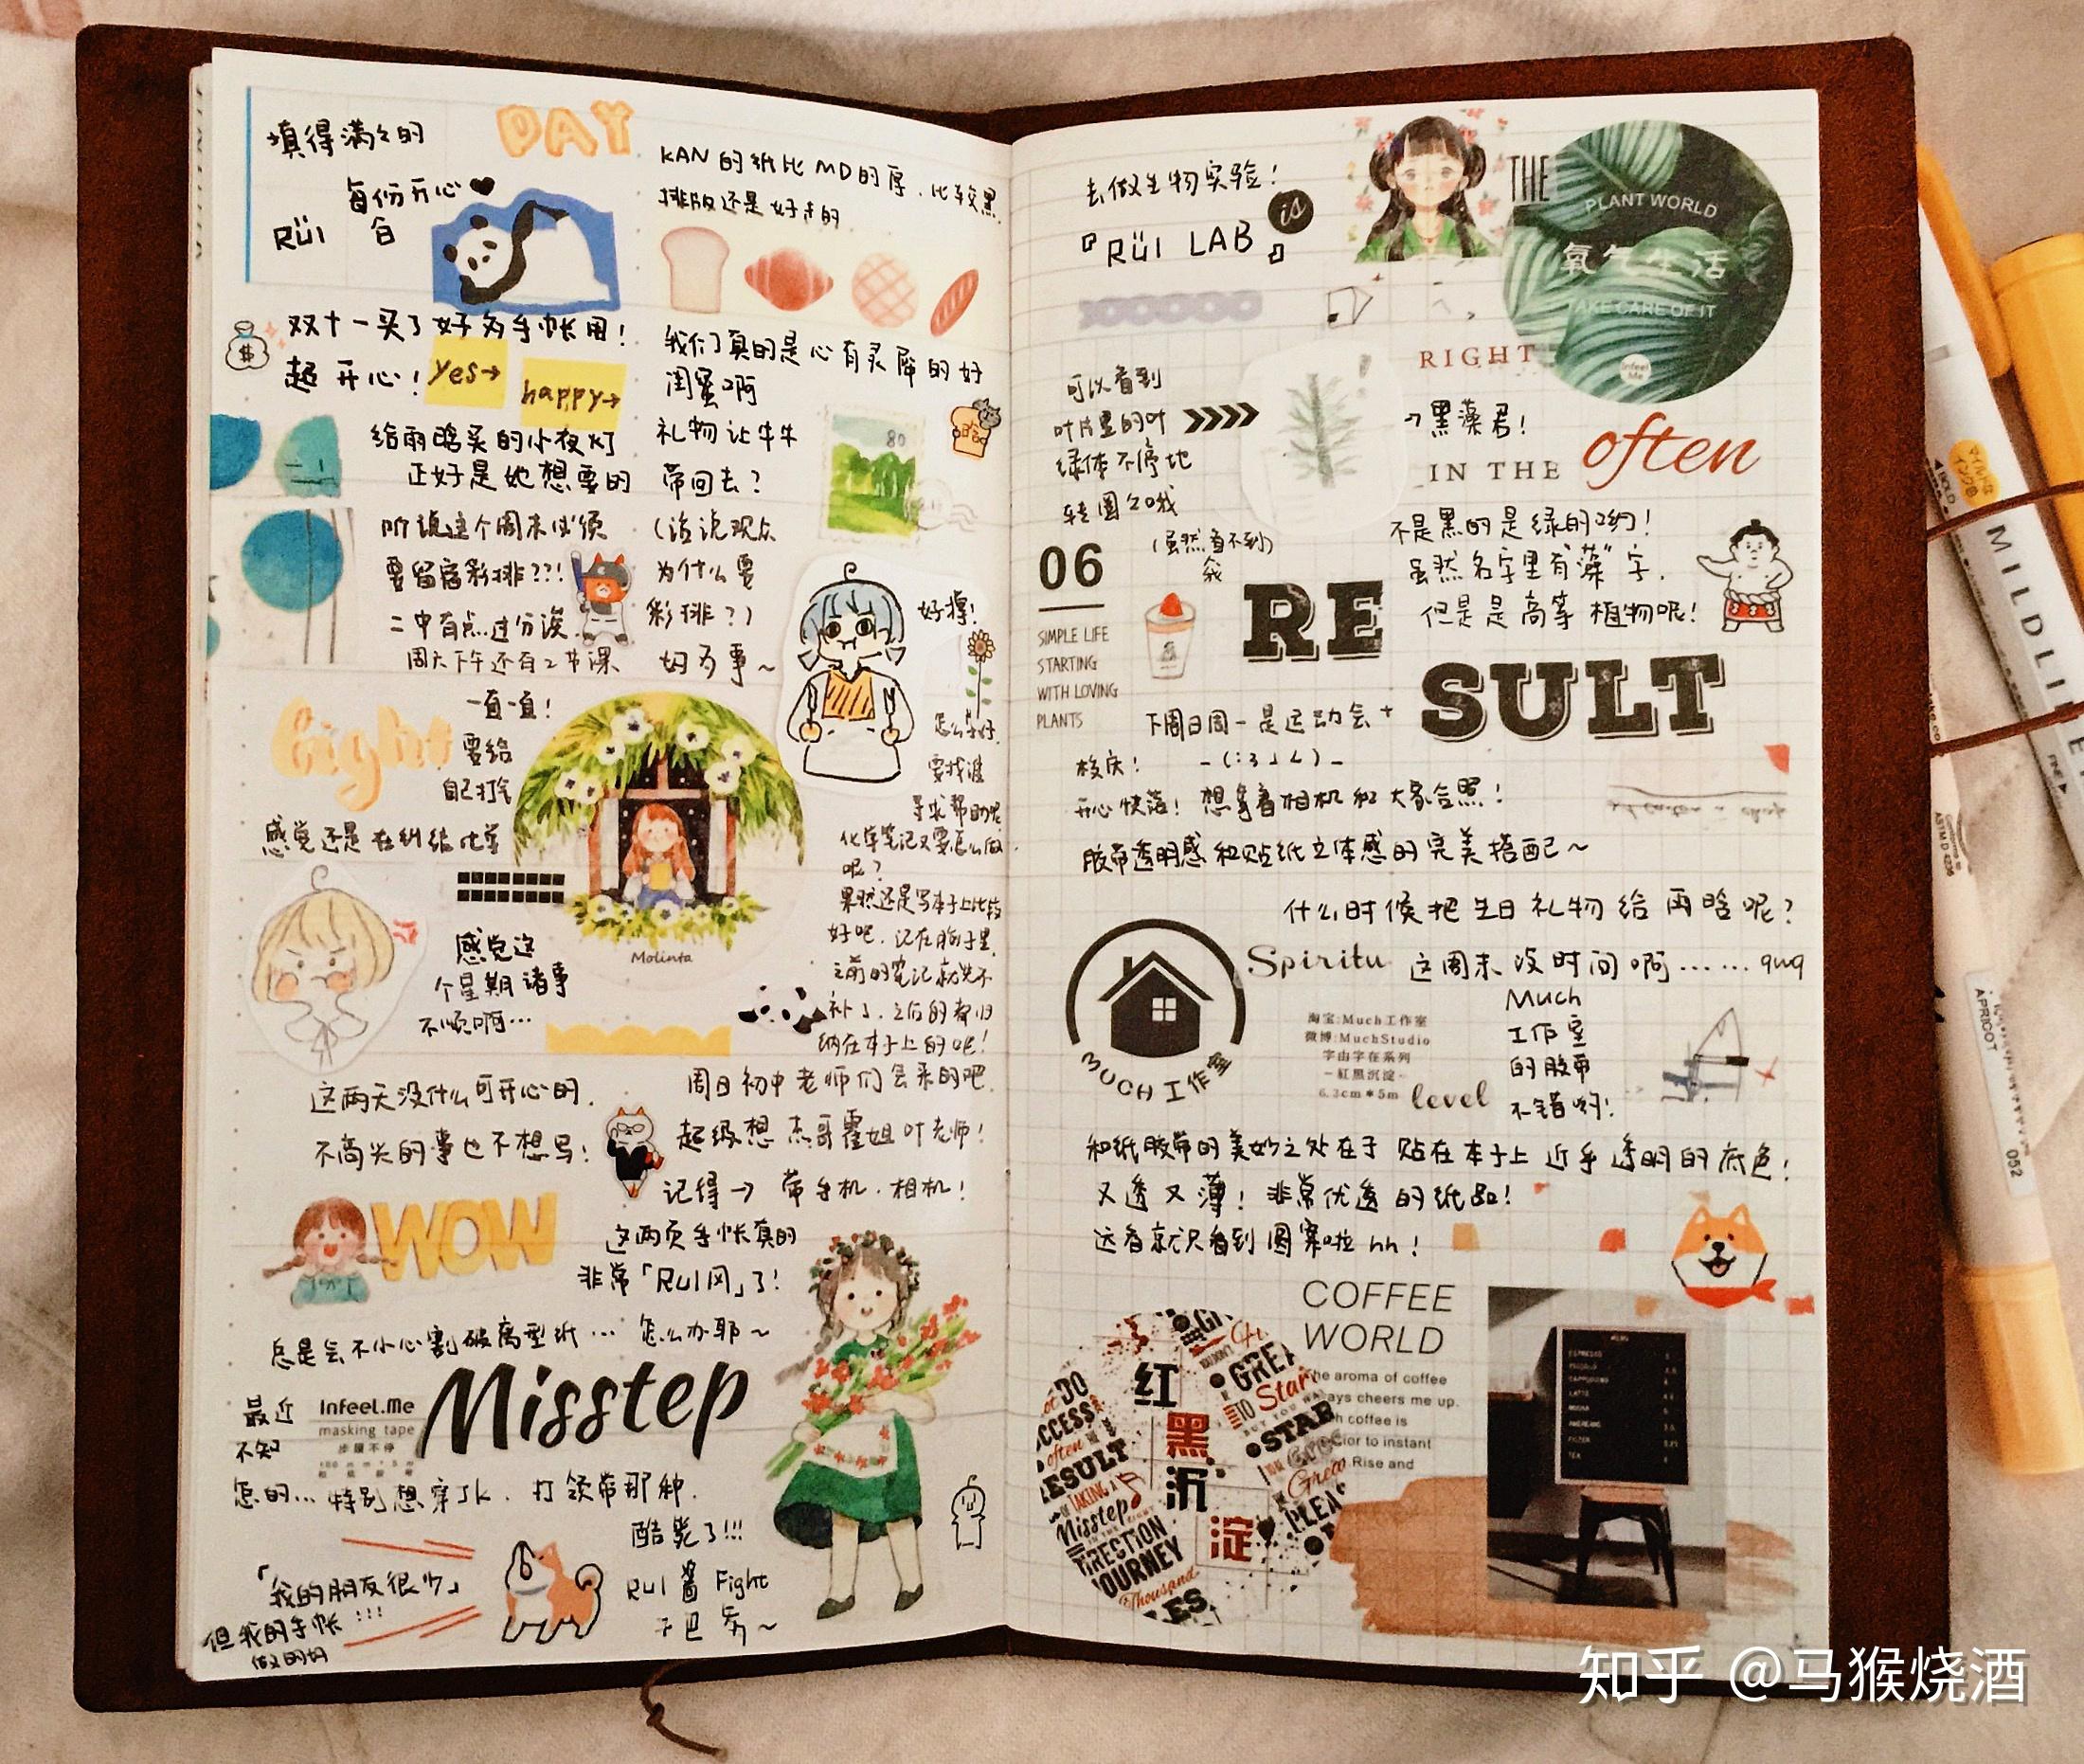 填得满々的
每份开心
RÜI 白
DAY
KAN的纸比MD的厚、比较黑
排版还是好卡的
双十一买了好多手帐用!
超开心!
yes→
happy→
我们真的是心有灵犀的好
闺蜜啊
给雨晗买的小夜灯
正好是她想要的
礼物让牛牛
带回去?
80
听说这个周末必须
要留宿彩排???!
二中有点过分诶
周六下午还有2节课
(话说观众
为什么要
彩排?)
好多事~
好撑!
light
一直一直!
要给
自己打气
感觉还是在纠结化学
Molinta
怎么学好
要找谁
寻求帮助呢
化学笔记又要怎么做
呢?
果然还是写本子上比较
好吧,记在脑子里
之前的笔记就先不
补了,之后的都归
纳在本子上的吧!
感觉这
个星期诸事
不顺啊...
这两天没什么可开心的.
不高兴的事也不想写!
周日初中老师们会来的吧.
超级想 杰哥霍姐叶老师!
记得→ 带手机.相机!
WOW
这两页手帐真的
非常「RUI风」了!
总是会不小心割破离型纸... 怎么办耶~
最近
不知
Infeel.Me
masking tape
步履不停
Misstep
怎的... 特别想穿JK. 打领带那种.
酷毙了!!!
「我的朋友很少」
但我的手帐!!!
做的好
RUI酱 Fight
去做生物实验!
『RÜI LAB』
is
THE
PLANT WORLD
氧气生活
TAKE CARE OF IT
Infeel Me
RIGHT
可以看到
叶片里的叶
绿体不停地
转圈々哦
(虽然看不到)
黑藻君!
IN THE
often
不是黑的是绿的哟!
虽然名字里有"藻"字.
但是是高等植物呢!
06
SIMPLE LIFE
STARTING
WITH LOVING
PLANTS
RE
SULT
下周日周一是运动会+
校庆!
开心快落! 想拿着相机和大家合照!
胶带透明感和贴纸立体感的完美搭配~
什么时候把生日礼物给雨晗呢?
Spiritu
这周末没时间啊...... qwq
MUCH工作室
淘宝:Much工作室
微博:MuchStudio
字由字在系列
-红黑沉淀-
6.3cm*5m
level
Much
工作室
的胶带
不错哟!
和纸胶带的美妙之处在于 贴在本子上 近乎透明的底色!
又透又薄! 非常优透的纸品!
远看就只看到图案啦hh!
COFFEE
WORLD
he aroma of coffee
ays cheers me up.
h coffee is
cior to instant
Rise and
红
黑
沉
淀
DO
CCESS
often
ESULT
TAKING A
Misstep
DIRECTION
JOURNEY
Thousand
GREA
TO Star
STAB
Grew
PLEA
知乎 @马猴烧酒
MILDLI
APRICOT
052